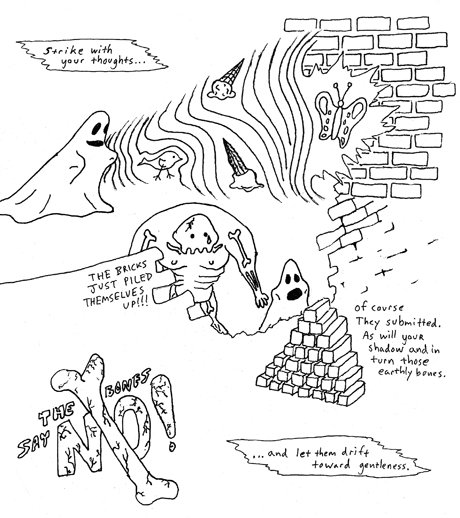 Strike with
your thoughts...
THE BRICKS
JUST PILED
THEMSELVES
UP!!!
of course
They submitted.
As will your
shadow and in
turn those
earthly bones.
THE BONES
SAY NO!
...and let them drift
toward gentleness.